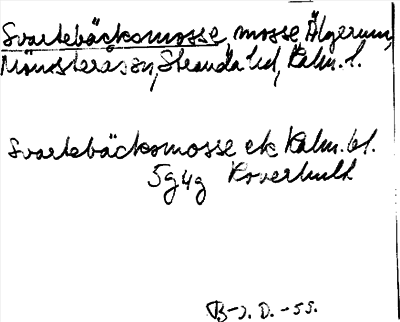 Svartebäcksmosse, mosse, Älgerum,
Mönsterås sn, Stranda hd, Kalm. l.
Svartebäcksmosse ek Kalm. bl.
5g4g Roverhult
B-J. D. -55.